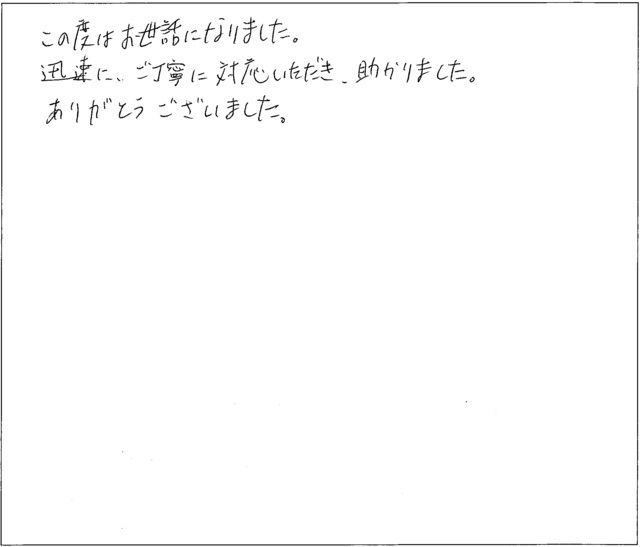 この度はお世話になりました。
迅速に、ご丁寧に対応いただき、助かりました。
ありがとうございました。